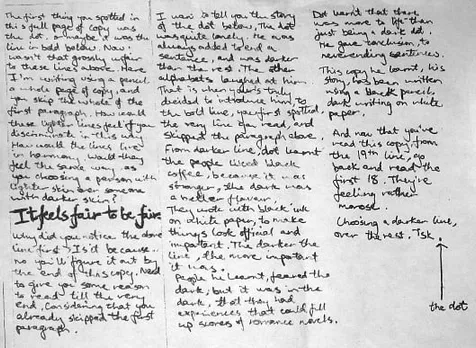 The first thing you spotted in
this full page of copy was
the dot, or maybe it was the
line in bold below. Now
wasn't that grossly unfair
to these lines above. Here
I'm writing using a pencil
a whole page of copy, and
you skip the whole of the
first paragraph. How would
these lighter lines feel if you
discriminate in reading.
How would the lines live
in harmony. Would they
feel the same way, as
you choosing a person with
lighter skin over someone
with darker skin?
It feels fair to be fair
Why did you notice the above
line first? Is'd be because..
no you'll figure it out by
the end of this copy. Need
to give you some reason
to read till the very
end, considering that you
already skipped the first
paragraph.
I want to tell you the story
of the dot below, The dot
was quite lonely. He was
always added to end a
sentence, and was darker
than the rest. The other
alphabets laughed at him.
That is when yours truly
decided to introduce him, to
the bold line, you first spotted,
the very line you read, and
skipped the paragraph above.
From darker line, dot learnt
the people liked black
coffee, because it was
stronger, the dark was
a better flavour.
They wrote with black ink
on white paper, to make
things look official and
important. The darker the
line, the more important
it was.
People he learnt, feared the
dark, but it was in the
dark, that they had
experiences that could fill
up scores of romance novels.
Dot learnt that there
was more to life than
just being a dark dot.
He gave conclusion, to
neverending sentences.
This copy he learnt, his
story, has been written
using a black pencil,
dark writing on white
paper.
And now that you've
read this copy from
the 19th line, go
back and read the
first 18. They're
feeling rather
morose.
Choosing a darker line,
over the rest. Tsk.
the dot